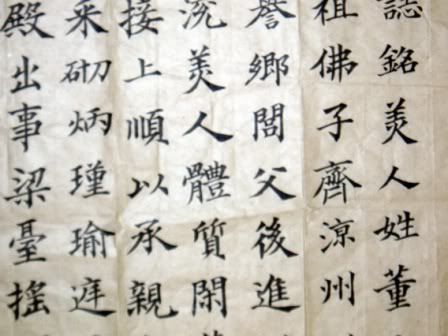 誌銘美人姓董
祖佛子齊涼州
譽鄉閭父後進
兗美人體質閑
接上順以承親
采砌炳瑾瑜庭
殿出事梁臺搖